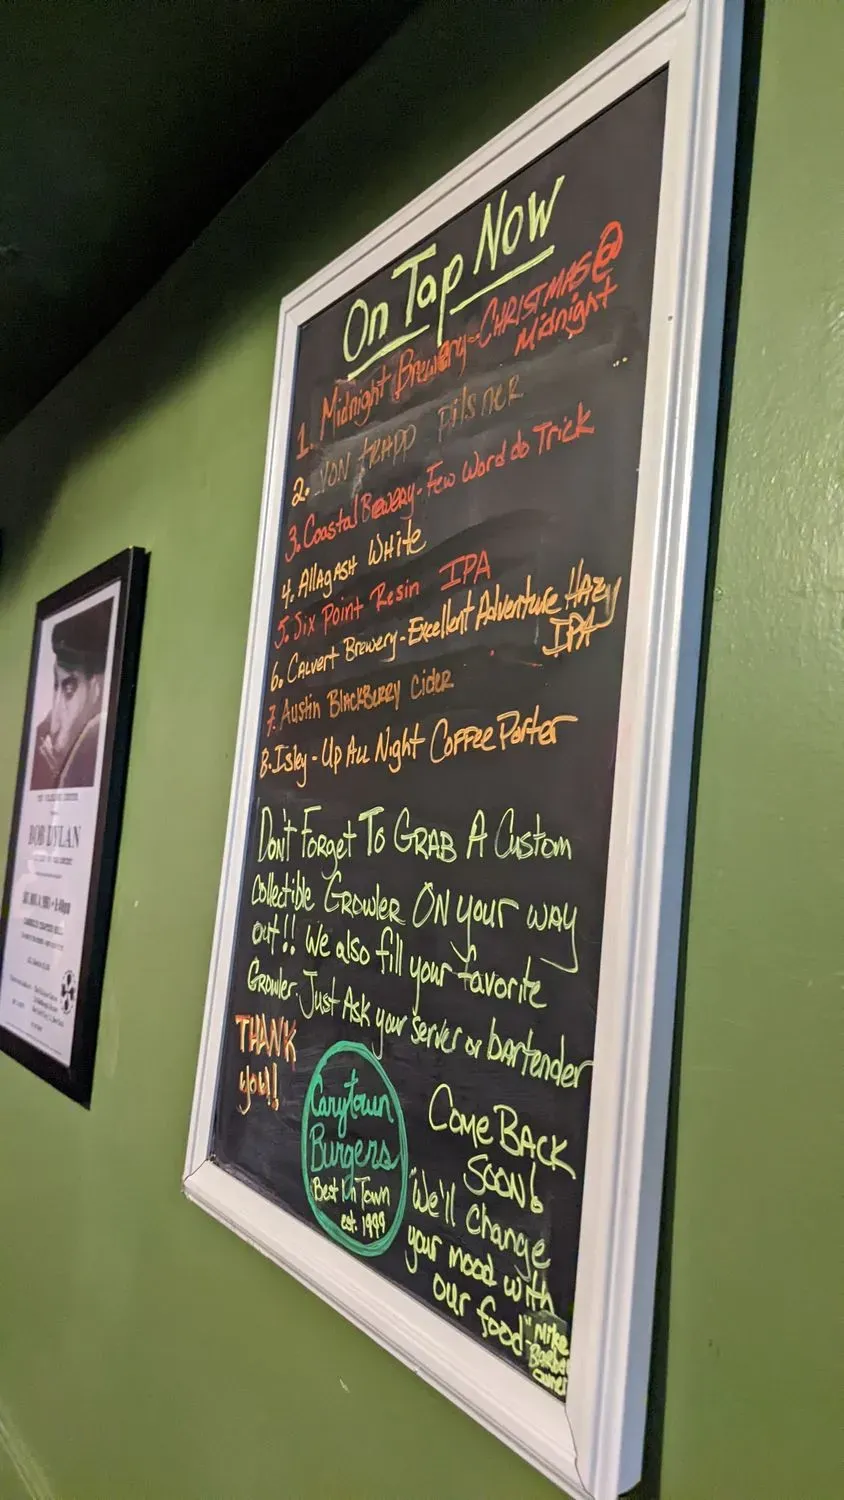 On Tap Now
1. Midnight Brewery - CHRISTMAS @
Midnight
2. VON TRAPP PILSNER
3. Coastal Brewery - Few Word do Trick
4. Allagash White
5. Six Point Resin IPA
6. Calvert Brewery - Excellent Adventure Hazy
IPA
7. Austin BlackBerry Cider
8. Isley - Up All Night Coffee Porter
Don't Forget To GRAB A Custom
Collectible Growler ON your way
out!! We also fill your favorite
Growler. Just Ask your server or bartender
THANK
you!!
Carytown
Burgers
Best In Town
est. 1999
Come Back
Soon!
"We'll Change
your mood with
our food"
- Mike
Barber
owner
BOB DYLAN